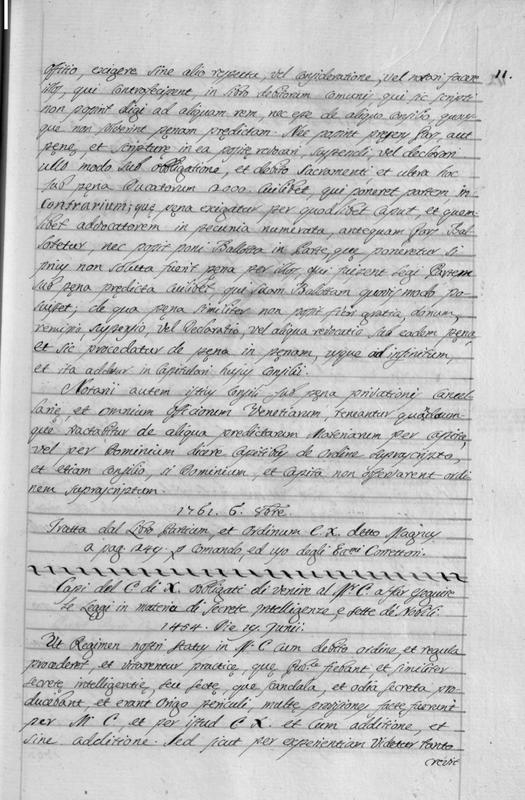 11.
offitio, exigere sine alio respectu, vel consideratione, vel notari facere
illos, qui contrafecerint in libro debitorum comunis, qui sic scripti
non possint eligi ad aliquam rem, nec esse de aliquo consilio, quous
que non solverint penam predictam. Nec possint presens pars, aut
pene, et scripture in ea posite revocari, suspendi, vel declarari
ullo modo sub obbligatione, et debito Sacramenti et ultra hoc
sub pena Ducatorum 2000. Cuilibet, qui poneret partem in
Contrarium; que pena exigatur per quodlibet Caput, et quem
libet advocatorem in pecunia numerata, antequam pars Bal
lotetur, nec possit poni Ballotta in Parte, que poneretur si
prius non soluta fuerit pena per illos, qui fuissent legi Partem
sub pena predicta Cuilibet qui suam Ballotam quovis modo po
suisset; de qua pena similiter non possit fieri gratia, donum,
remissio, suspensio, vel Declaratio, vel aliqua revocatio sub eadem pena,
et sic procedatur de pena in penam, usque ad infinitum,
et ita addatur in Capitulari hujus Consilii.
Notarii autem istius Consilii sub pena privationis Cancel
larie, et omnium Officiorum Venetiarum, teneantur quandocum
que tractabitur de aliqua predictarum Materiarum per Capita,
vel per Dominium dicere Capitibus de Ordine suprascripto,
et etiam Consilio, si Dominium, et Capita non observarent ordi
nem suprascriptum.
1761. 6. Sbre
Tratta dal Libro Partium, et Ordinum C. X. detto Magnus
a pag. 249. p Comando, ed uso degli Ecc.mi Correttori.
Capi del C. di X. obbligati di venire al M.r C. a far eseguire
le Leggi in materia di Secrete Intelligenze, e Sette de Nobili.
1454. Die 19. Junii.
Ut Regimen nostri Status in M. C. cum debito ordine, et regula
procederet, et vitarentur practice, que Pub.ce fiebant et similiter
secrete intelligentie, seu secte, que scandala, et odia secreta pro
ducebant, et erant Origo periculi, multe provisiones facte fuerunt
per M. C. et per istud C. X. et Cum additione, et
sine additione. Sed sicut per experientiam Videtur tanto
crevit